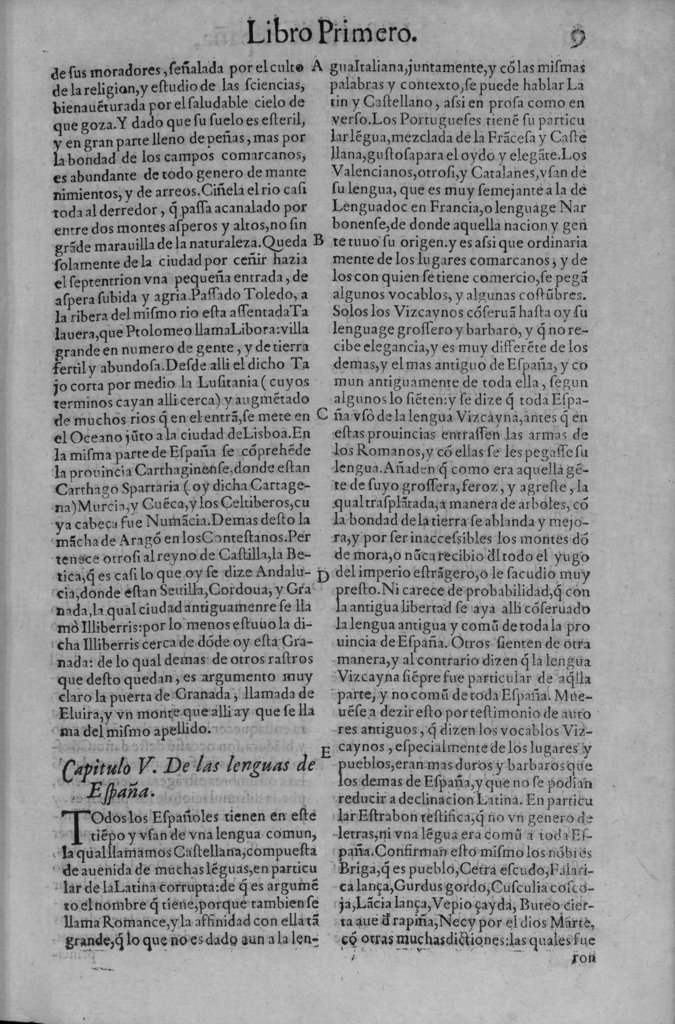 Libro Primero. 9
de sus moradores, ſeñalada por el culto
de la religion, y eſtudio de las ſciencias,
bienauẽturada por el ſaludable cielo de
que goza. Y dado que ſu ſuelo es eſteril,
y en gran parte lleno de peñas, mas por
la bondad de los campos comarcanos,
es abundante de todo genero de mante
nimientos, y de arreos. Ciñela el rio caſi
toda al derredor, q̃ paſſa acanalado por
entre dos montes aſperos y altos, no ſin
grãde marauilla de la naturaleza. Queda
ſolamente de la ciudad por ceñir hazia
el ſeptentrion vna pequeña entrada, de
aſpera ſubida y agria. Paſſado Toledo, a
la ribera del miſmo rio eſta aſſentada Ta
lauera, que Ptolomeo llama Libora: villa
grande en numero de gente, y de tierra
fertil y abundoſa. Deſde alli el dicho Ta
jo corta por medio la Luſitania (cuyos
terminos cayan alli cerca) y augmẽtado
de muchos rios q̃ en el entrã, ſe mete en
el Oceano jũto a la ciudad de Lisboa. En
la miſma parte de Eſpaña ſe cõprehẽde
la prouincia Carthaginenſe, donde eſtan
Carthago Spartaria (oy dicha Cartage-
na) Murcia, y Cuẽca, y los Celtiberos, cu
ya cabeça fue Numãcia. Demas deſto la
mãcha de Aragõ en los Conteſtanos. Per
tenece otroſi al reyno de Caſtilla, la Be-
tica, q̃ es caſi lo que oy ſe dize Andalu-
cia, donde eſtan Seuilla, Cordoua, y Gra
nada, la qual ciudad antiguamenre ſe lla
mò Illiberris: por lo menos eſtuuo la di-
cha Illiberris cerca de dõde oy eſta Gra-
nada: de lo qual demas de otros raſtros
que deſto quedan, es argumento muy
claro la puerta de Granada, llamada de
Eluira, y vn monte que alli ay que ſe lla
ma del miſmo apellido.
Capitulo V. De las lenguas de
Eſpaña.
TOdos los Eſpañoles tienen en eſte
tiẽpo y vſan de vna lengua comun,
la qual llamamos Caſtellana, compueſta
de auenida de muchas lẽguas, en particu
lar de la Latina corrupta: de q̃ es argumẽ
to el nombre q̃ tiene, porque tambien ſe
llama Romance, y la affinidad con ella tã
grande, q̃ lo que no es dado aun a la len-
A
B
C
D
E
gua Italiana, juntamente, y cõ las miſmas
palabras y contexto, ſe puede hablar La
tin y Caſtellano, aſsi en proſa como en
verſo. Los Portugueſes tienẽ ſu particu
lar lẽgua, mezclada de la Frãceſa y Caſte
llana, guſtoſa para el oydo y elegãte. Los
Valencianos, otroſi, y Catalanes, vſan de
ſu lengua, que es muy ſemejante a la de
Lenguadoc en Francia, o lenguage Nar
bonenſe, de donde aquella nacion y gen
te tuuo ſu origen. y es aſsi que ordinaria
mente de los lugares comarcanos, y de
los con quien ſe tiene comercio, ſe pegã
algunos vocablos, y algunas coſtũbres.
Solos los Vizcaynos cõſeruã haſta oy ſu
lenguage groſſero y barbaro, y q̃ no re-
cibe elegancia, y es muy differẽte de los
demas, y el mas antiguo de Eſpaña, y co
mun antiguamente de toda ella, ſegun
algunos lo ſiẽten: y ſe dize q̃ toda Eſpa-
ña vſò de la lengua Vizcayna, antes q̃ en
eſtas prouincias entraſſen las armas de
los Romanos, y cõ ellas ſe les pegaſſe ſu
lengua. Añaden q̃ como era aquella gẽ-
te de ſuyo groſſera, feroz, y agreſte, la
qual traſplãtada, a manera de arboles, cõ
la bondad de la tierra ſe ablanda y mejo-
ra, y por ſer inacceſsibles los montes dõ
de mora, o nũca recibio dl todo el yugo
del imperio eſtrãgero, o le ſacudio muy
preſto. Ni carece de probabilidad, q̃ con
la antigua libertad ſe aya alli cõſeruado
la lengua antigua y comũ de toda la pro
uincia de Eſpaña. Otros ſienten de otra
manera, y al contrario dizen q̃ la lengua
Vizcayna ſiẽpre fue particular de aq̃lla
parte, y no comũ de toda Eſpaña. Mue-
uẽſe a dezir eſto por teſtimonio de auto
res antiguos, q̃ dizen los vocablos Viz-
caynos, eſpecialmente de los lugares y
pueblos, eran mas duros y barbaros que
los demas de Eſpaña, y que no ſe podian
reducir a declinacion Latina. En particu
lar Eſtrabon teſtifica, q̃ no vn genero de
letras, ni vna lẽgua era comũ a toda Eſ-
paña. Confirman eſto miſmo los nõbres
Briga, q̃ es pueblo, Cetra eſcudo, Falari-
ca lança, Gurdus gordo, Cuſculia coſco-
ja, Lãcia lança, Vepio çayda, Buteo cier-
ta aue d̃ rapiña, Necy por el dios Marte,
cõ otras muchas dictiones: las quales fue
ron